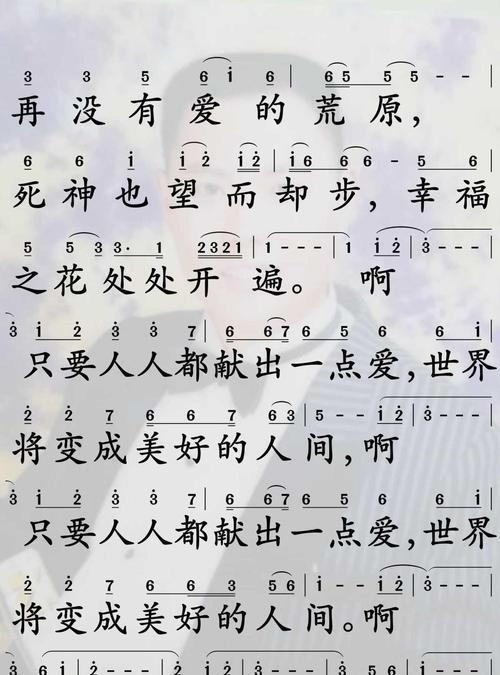 3 3 5 6 i 6 | 6 5 5 5 - - |
再没有爱的荒原，
6 6 i i 2 i 2 | i 6 6 6 - 5 6 |
死神也望而却步，幸福
5 5 3 3· 1 2321 | 1 - - - | 1 i 2 | 3 - - - |
之花处处开遍。啊
3 i 2 3 3 7 | 6 6 7 6 5 6 6 i |
只要人人都献出一点爱，世界
2 2 7 6 6 7 6 3 | 5 - - i 2 | 3 - - - |
将变成美好的人间，啊
3 i 2 3 3 7 | 6 6 7 6 5 6 6 i |
只要人人都献出一点爱，世界
2 2 7 6 6 3 5 6 | i - - i 2 | 3 - - - |
将变成美好的人间。啊
3 6 i | 2 - - - | 2 i 2 | 3 - - - | 3 5 6 | i - - - |